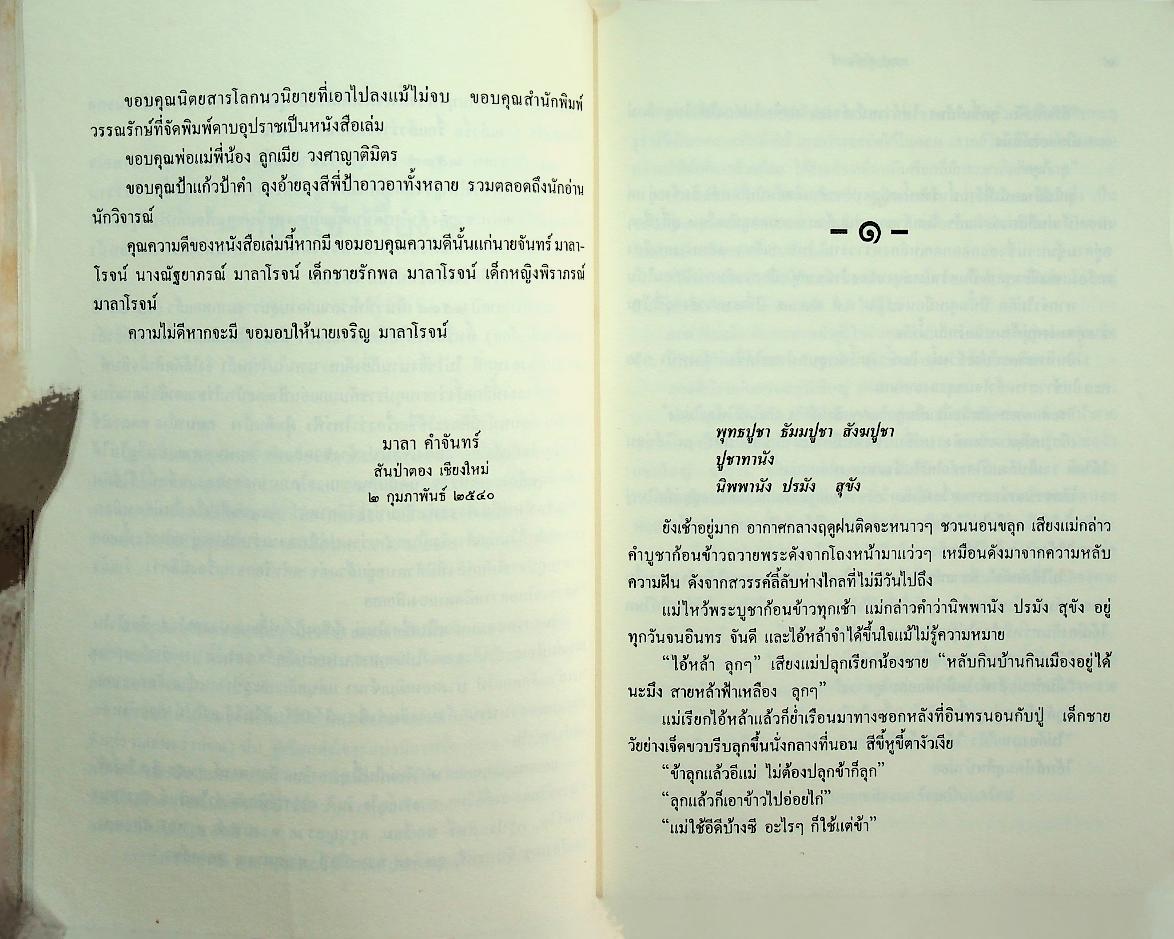 ขอบคุณนิตยสารโลกนวนิยายที่เอาไปลงแม้ไม่จบ ขอบคุณสำนักพิมพ์
วรรณรักษ์ที่จัดพิมพ์ดาบอุปราชเป็นหนังสือเล่ม
ขอบคุณพ่อแม่พี่น้อง ลูกเมีย วงศาญาติมิตร
ขอบคุณป้าแก้วป้าคำ ลุงอ้ายลุงสีพี่ป้าอาวอาทั้งหลาย รวมตลอดถึงนักอ่าน
นักวิจารณ์
คุณความดีของหนังสือเล่มนี้หากมี ขอมอบคุณความดีนั้นแก่นายจันทร์ มาลา-
โรจน์ นางณัฐยาภรณ์ มาลาโรจน์ เด็กชายรักพล มาลาโรจน์ เด็กหญิงพิราภรณ์
มาลาโรจน์
ความไม่ดีหากจะมี ขอมอบให้นายเจริญ มาลาโรจน์
มาลา คำจันทร์
สันป่าตอง เชียงใหม่
๒ กุมภาพันธ์ ๒๕๔๐
– ๑ –
พุทธปูชา ธัมมปูชา สังฆปูชา
ปูชาทานัง
นิพพานัง ปรมัง สุขัง
ยังเช้าอยู่มาก อากาศกลางฤดูฝนติดจะหนาวๆ ชวนนอนขลุก เสียงแม่กล่าว
คำบูชาก้อนข้าวถวายพระดังจากโถงหน้ามาแว่วๆ เหมือนดังมาจากความหลับ
ความฝัน ดังจากสวรรค์ลี้ลับห่างไกลที่ไม่มีวันไปถึง
แม่ไหว้พระบูชาก้อนข้าวทุกเช้า แม่กล่าวคำว่านิพพานัง ปรมัง สุขัง อยู่
ทุกวันจนอินทร จันดี และไอ้หล้าจำได้ขึ้นใจแม้ไม่รู้ความหมาย
“ไอ้หล้า ลุกๆ” เสียงแม่ปลุกเรียกน้องชาย “หลับกินบ้านกินเมืองอยู่ได้
นะมึง สายหล้าฟ้าเหลือง ลุกๆ”
แม่เรียกไอ้หล้าแล้วก็ย่ำเรือนมาทางซอกหลังที่อินทรนอนกับปู่ เด็กชาย
วัยย่างเจ็ดขวบรีบลุกขึ้นนั่งกลางที่นอน สีขี้หูขี้ตางัวเงีย
“ข้าลุกแล้วอีแม่ ไม่ต้องปลุกข้าก็ลุก”
“ลุกแล้วก็เอาข้าวไปอ่อยไก่”
“แม่ใช้อีดีบ้างซี อะไรๆ ก็ใช้แต่ข้า”